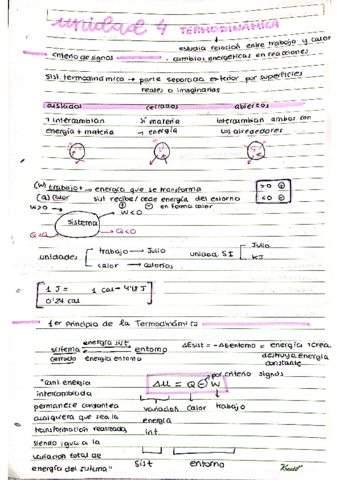 unidad 4 TERMODINÁMICA
estudia relación entre trabajo y calor
criterio de signos
cambios energéticos en reacciones.
sist. termodinámica → parte separada exterior por superficies
reales o imaginarias
aislados cerrados abiertos
intercambian materia intercambian ambos con
energía + materia energía los alrededores
(W) trabajo → energía que se transforma >0 ⊕
(Q) calor sist recibe/cede energía del entorno <0 ⊖
W>0 ⊕ ⊖ en forma calor
W<0
sistema
Q>0 Q<0
unidades trabajo → Julio unidad SI Julio
calor → calorías KJ
1 J = 1 cal → 4'18 J
0'24 cal
1er principio de la Termodinámica
energía sist
sistema entorno ΔEsist = -ΔEentorno = energía
cerrado energía entorno destruya energía
constante
por criterio signos
"cant. energía ΔU = Q ⊖ W
intercambiada
permanece constante a variación calor trabajo
cualquiera que sea la energía
transformación realizada, int
siendo igual a la
variación total de sist entorno
energía del sistema"